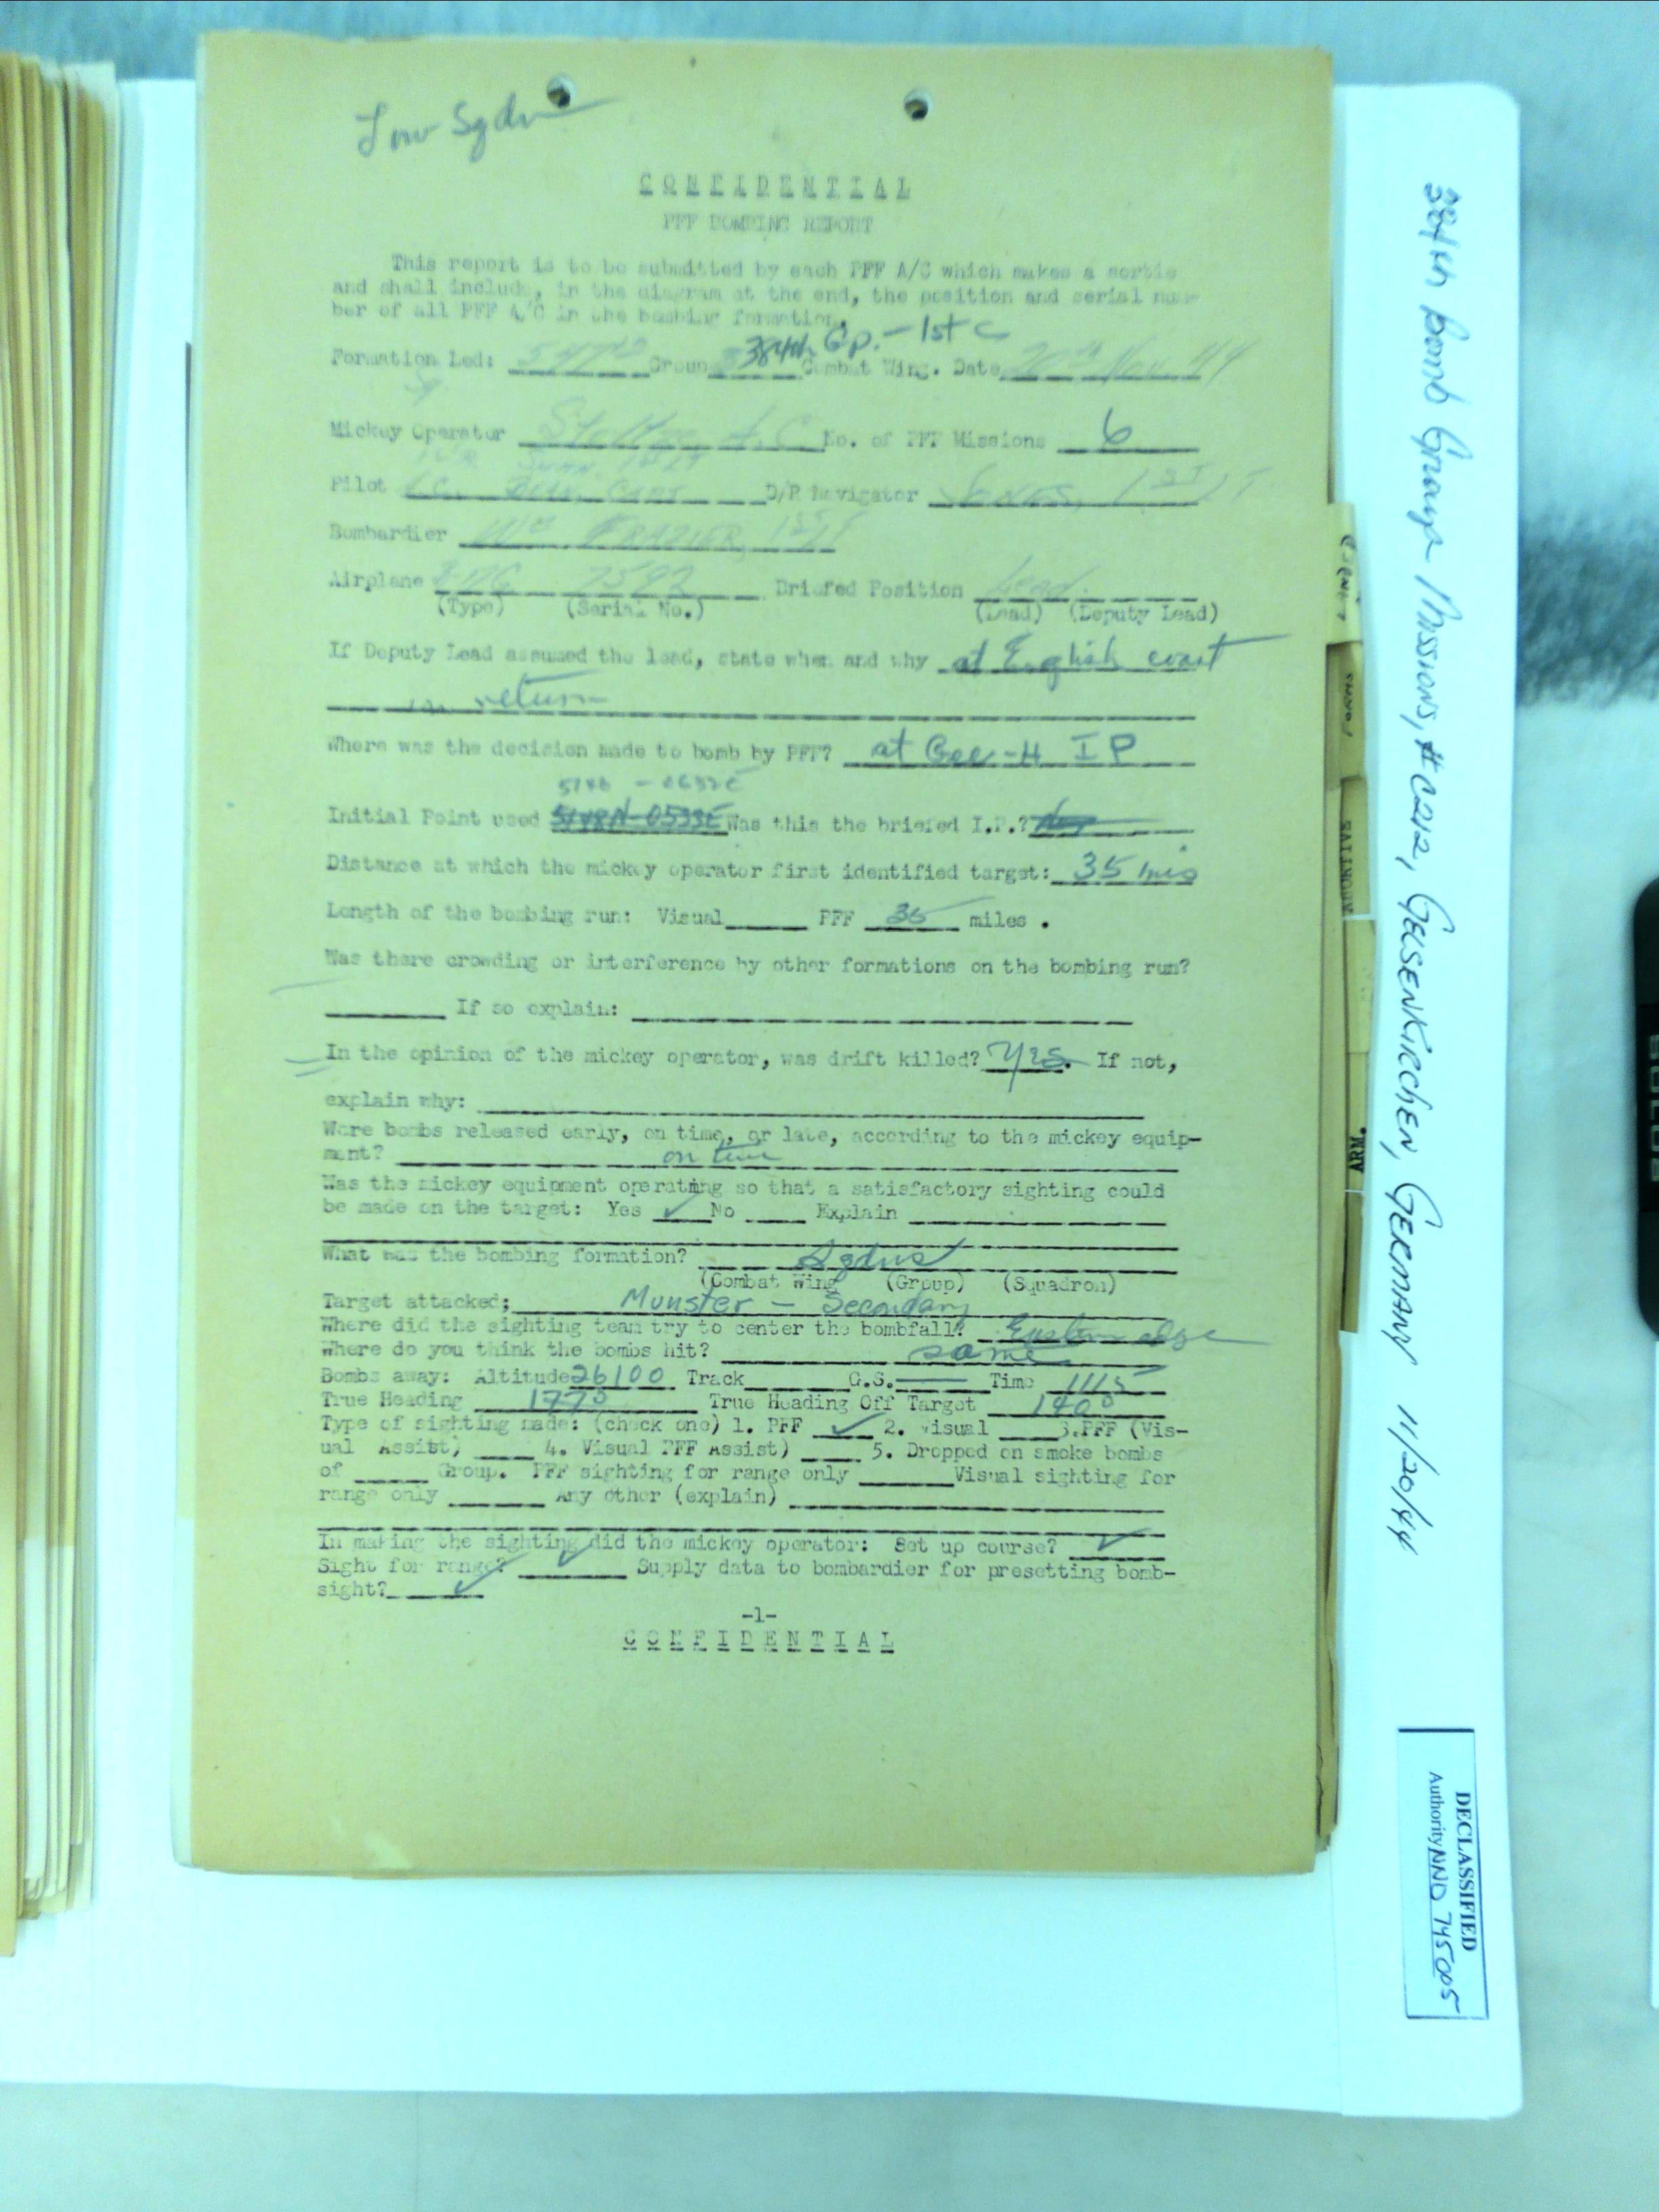 Low Sqdn
CONFIDENTIAL
PFF BOMBING REPORT
This report is to be submitted by each PFF A/C which makes a sortie
and shall include, in the diagram at the end, the position and serial num-
ber of all PFF A/C in the bombing formation.
384th Gp. - 1st C
Formation Led: Group Combat Wing. Date 20th Nov. 44
Mickey Operator No. of PFF Missions 6
Pilot D/R Navigator 1st Lt
Bombardier Wm FRAZIER, 1st Lt
Airplane B-17G 7592 Briefed Position Lead.
(Type) (Serial No.) (Lead) (Deputy Lead)
If Deputy Lead assumed the lead, state when and why at English coast
on return
Where was the decision made to bomb by PFF? at Gee-H IP
5148 - 0632E
Initial Point used 5148N-0533E Was this the briefed I.P.?
Distance at which the mickey operator first identified target: 35 mis
Length of the bombing run: Visual PFF 35 miles .
Was there crowding or interference by other formations on the bombing run?
If so explain:
In the opinion of the mickey operator, was drift killed? Yes. If not,
explain why:
Were bombs released early, on time, or late, according to the mickey equip-
ment? on time
Was the mickey equipment operating so that a satisfactory sighting could
be made on the target: Yes ✓ No Explain
What was the bombing formation? Sqdns
(Combat Wing (Group) (Squadron)
Target attacked; Munster - Secondary
Where did the sighting team try to center the bombfall? Eastern edge
Where do you think the bombs hit? same
Bombs away: Altitude 26100 Track G.S. Time 1115
True Heading 177° True Heading Off Target 140°
Type of sighting made: (check one) 1. PFF ✓ 2. Visual 3.PFF (Vis-
ual Assist) 4. Visual PFF Assist) 5. Dropped on smoke bombs
of Group. PFF sighting for range only Visual sighting for
range only Any other (explain)
In making the sighting did the mickey operator: Set up course? ✓
Sight for range? ✓ Supply data to bombardier for presetting bomb-
sight? ✓
-1-
CONFIDENTIAL
384th Bomb Group Missions, #C212, GELSENKIRCHEN, GERMANY 11/20/44
DECLASSIFIED
Authority NND 745005
FORMS
ABORTIVE
ARM.